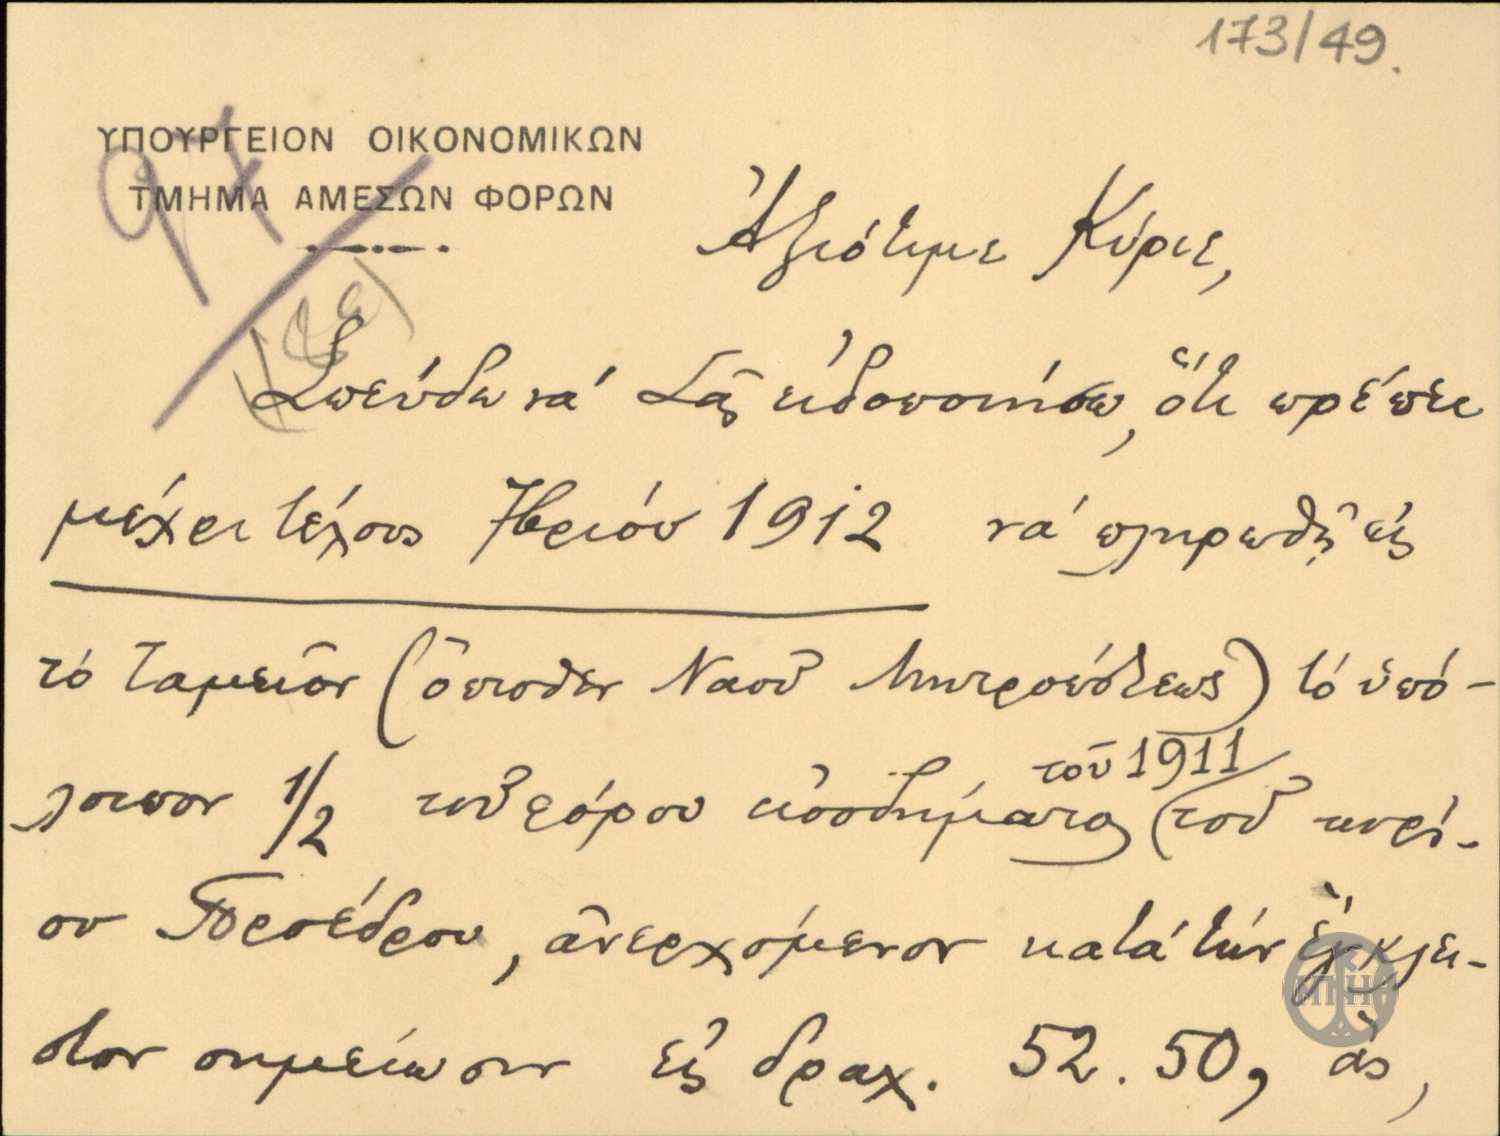 173/49.
ΥΠΟΥΡΓΕΙΟΝ ΟΙΚΟΝΟΜΙΚΩΝ
ΤΜΗΜΑ ΑΜΕΣΩΝ ΦΟΡΩΝ
97
Ἀξιότιμε Κύριε,
Σπεύδω νά Σᾶς εἰδοποιήσω, ὅτι πρέπει
μέχρι τέλους 7βρίου 1912 νά πληρωθῇ εἰς
τό Ταμεῖον (ὄπισθεν Ναοῦ Μητροπόλεως) τό ὑπό-
λοιπον 1/2 τοῦ φόρου εἰσοδήματος τοῦ 1911 (τοῦ κυρί-
ου Προέδρου, ἀνερχόμενον κατά τήν ἔγκλει-
στον σημείωσιν εἰς δραχ. 52.50, ἅς,
ΜΠΗ